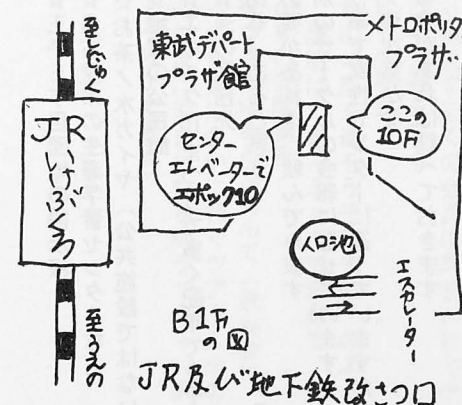 至しんじゅく
JR
いけぶくろ
至うえの
メトロポリタン
プラザ
東武デパート
プラザ館
センター
エレベーターで
エポック10
ここの
10F
人口池
エスカレーター
B1Fの図
JR及び地下鉄改さつ口